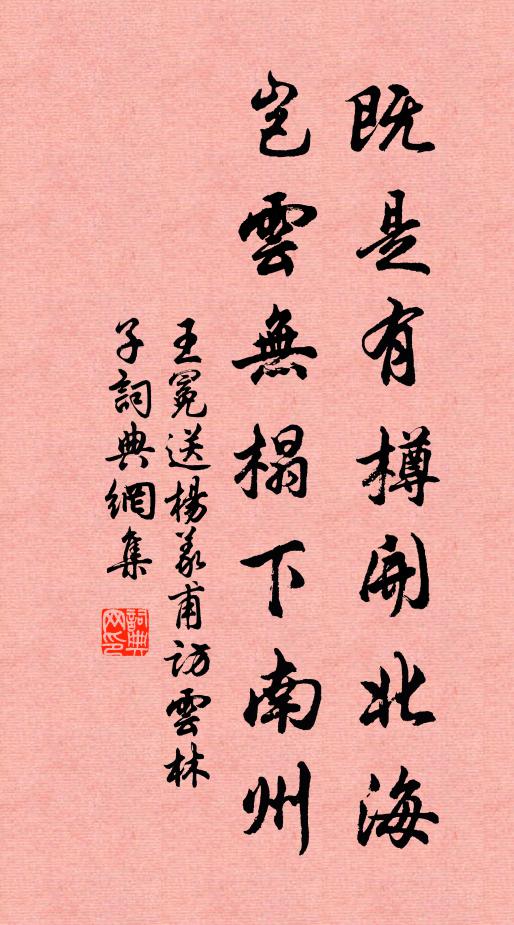 既是有樽開北海
豈雲無榻下南州
王冕送楊義甫訪雲林
子詞典網集
詞典網印